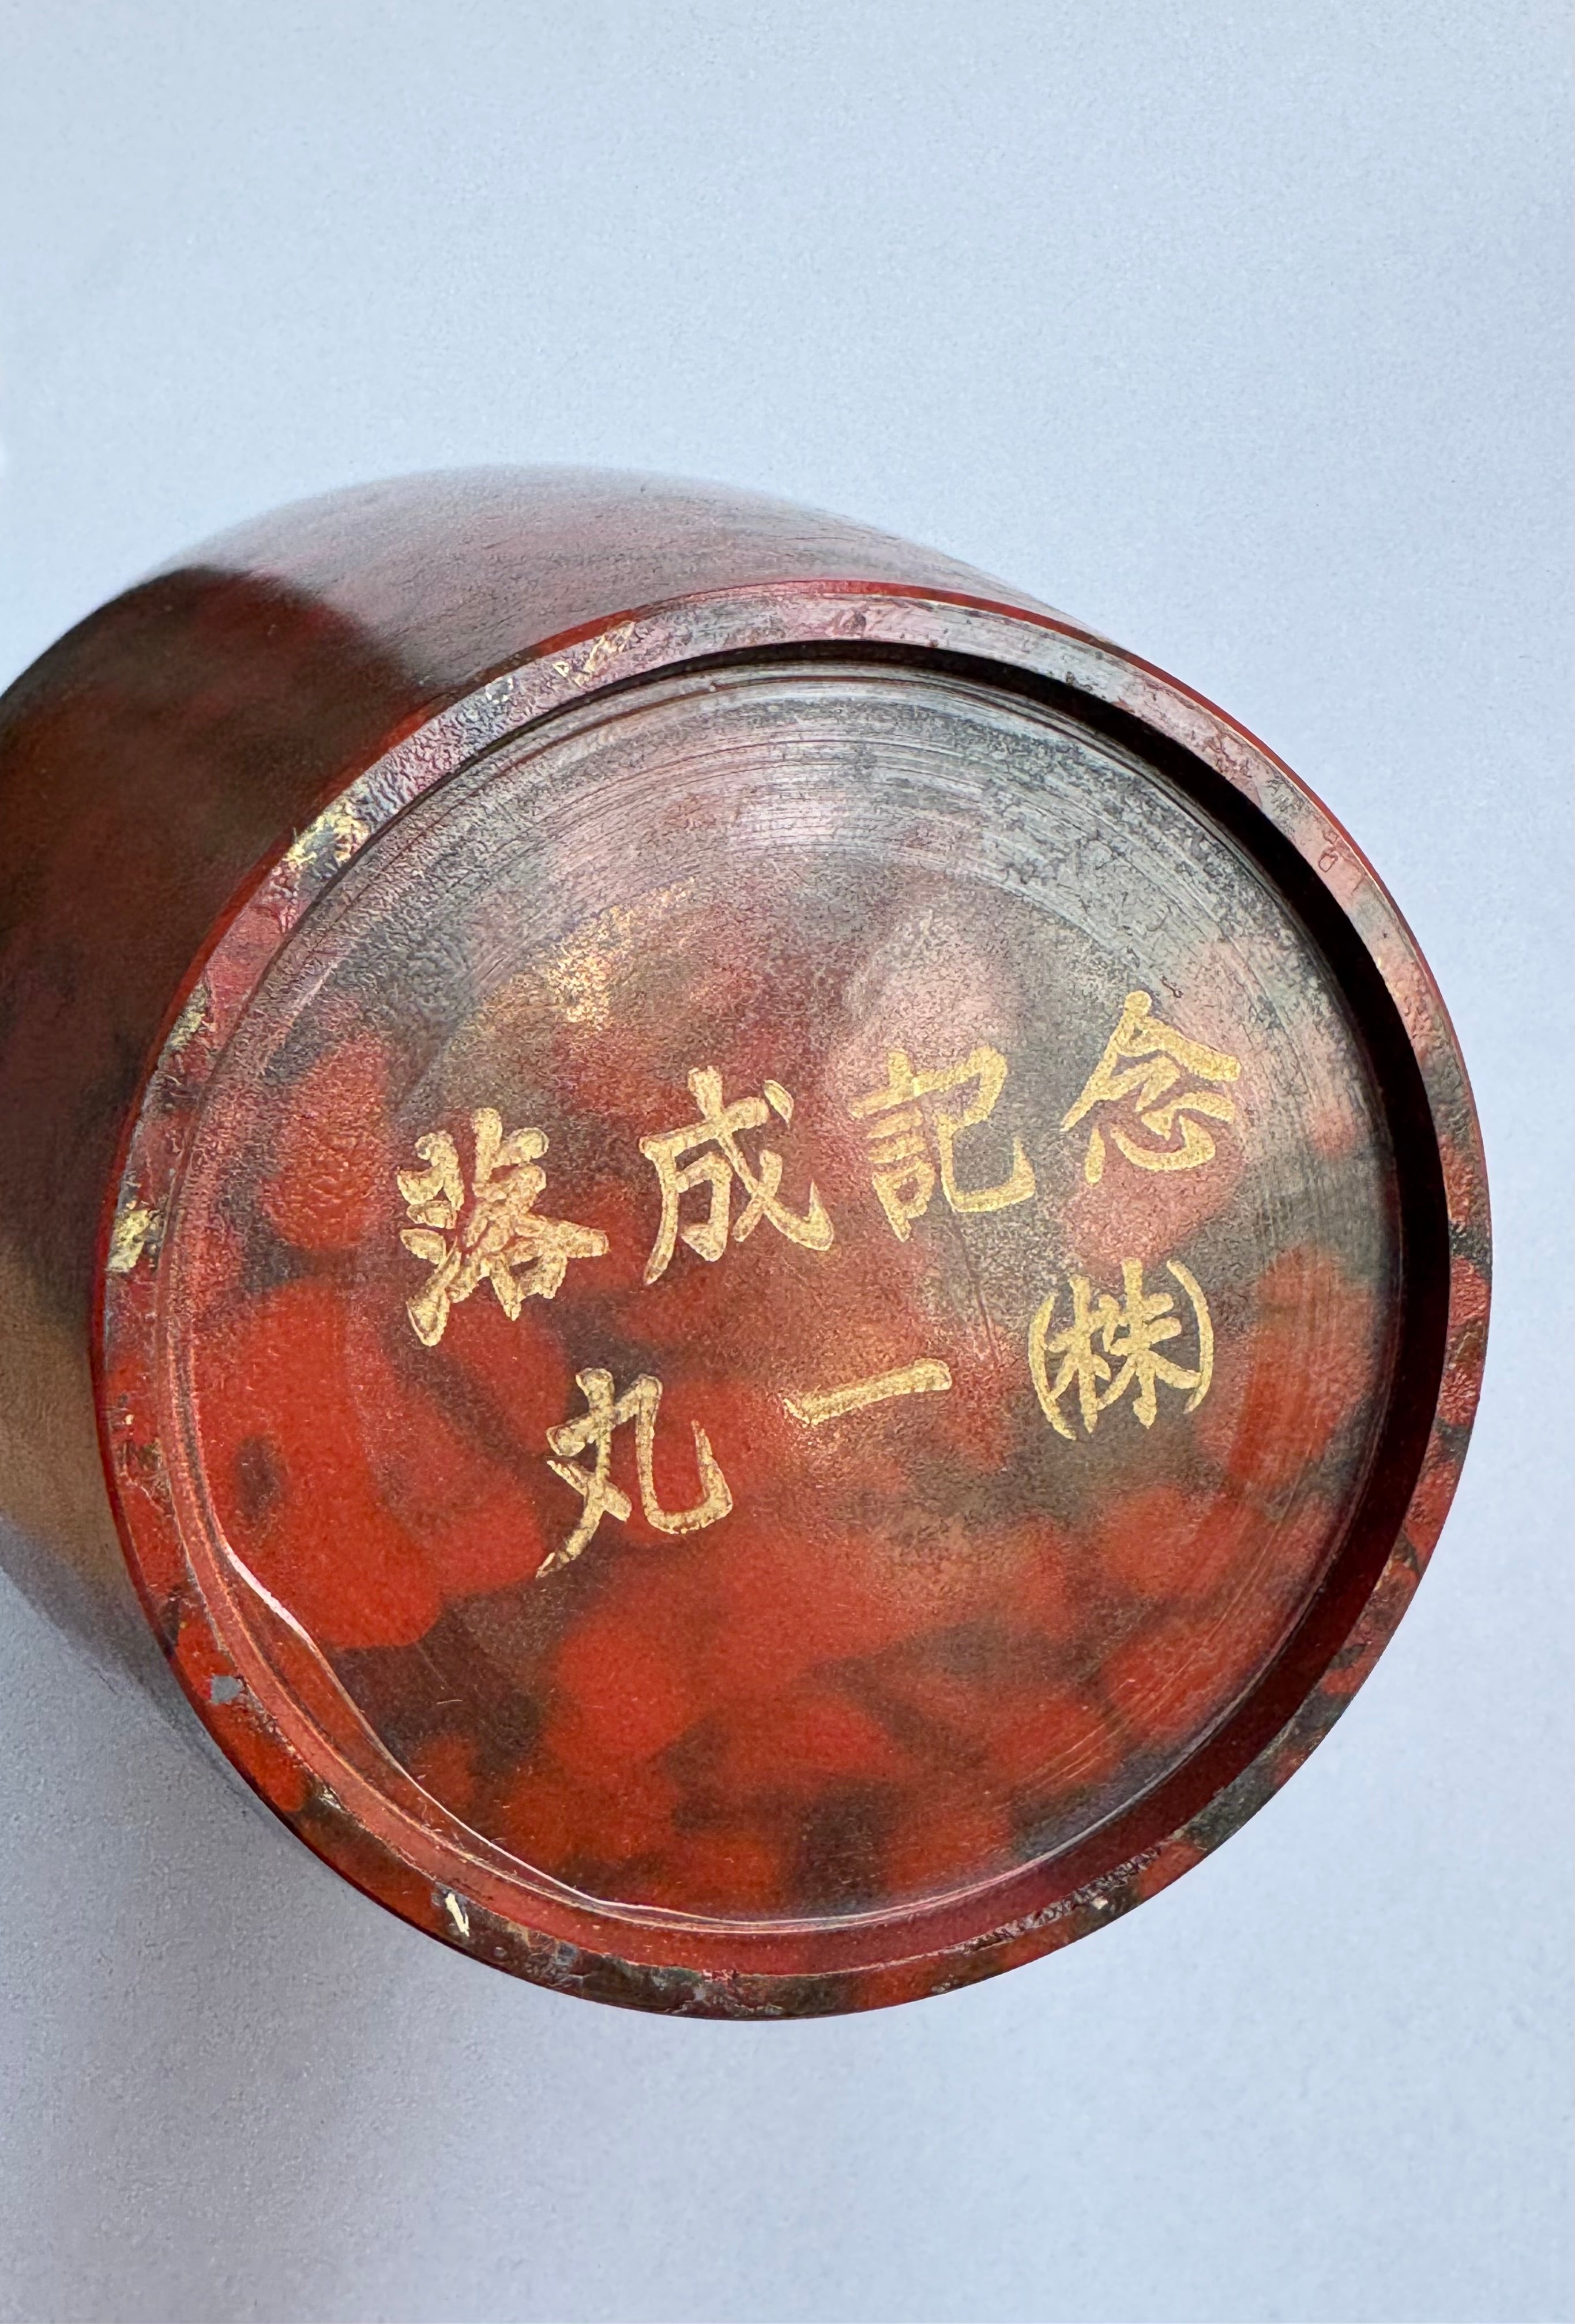 落成記念
丸一(株)